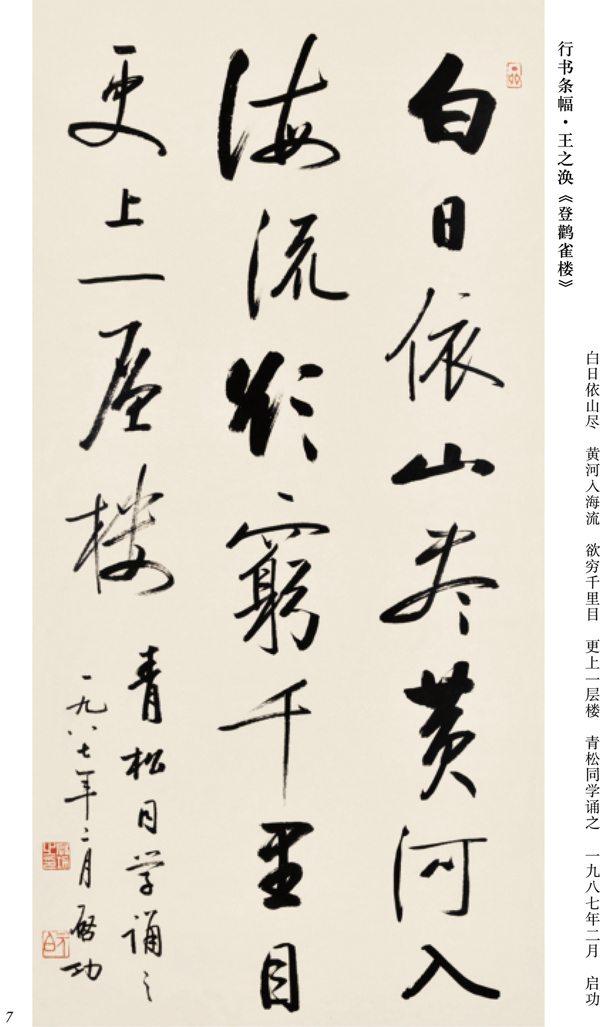 行书条幅·王之涣《登鹳雀楼》
白日依山尽 黄河入海流 欲穷千里目 更上一层楼 青松同学诵之 一九八七年二月 启功
白日依山尽黄河入
海流欲穷千里目
更上一层楼
青松同学诵之
一九八七年二月启功
7